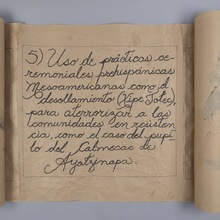 5) Uso de prácticas ce-
remoniales prehispánicas
Mesoamericanas como el
desollamiento (Xipe Totec),
para aterrorizar a las
comunidades en resisten-
cia, como el caso del pupi-
lo del Calmecac de
Ayotzinapa.